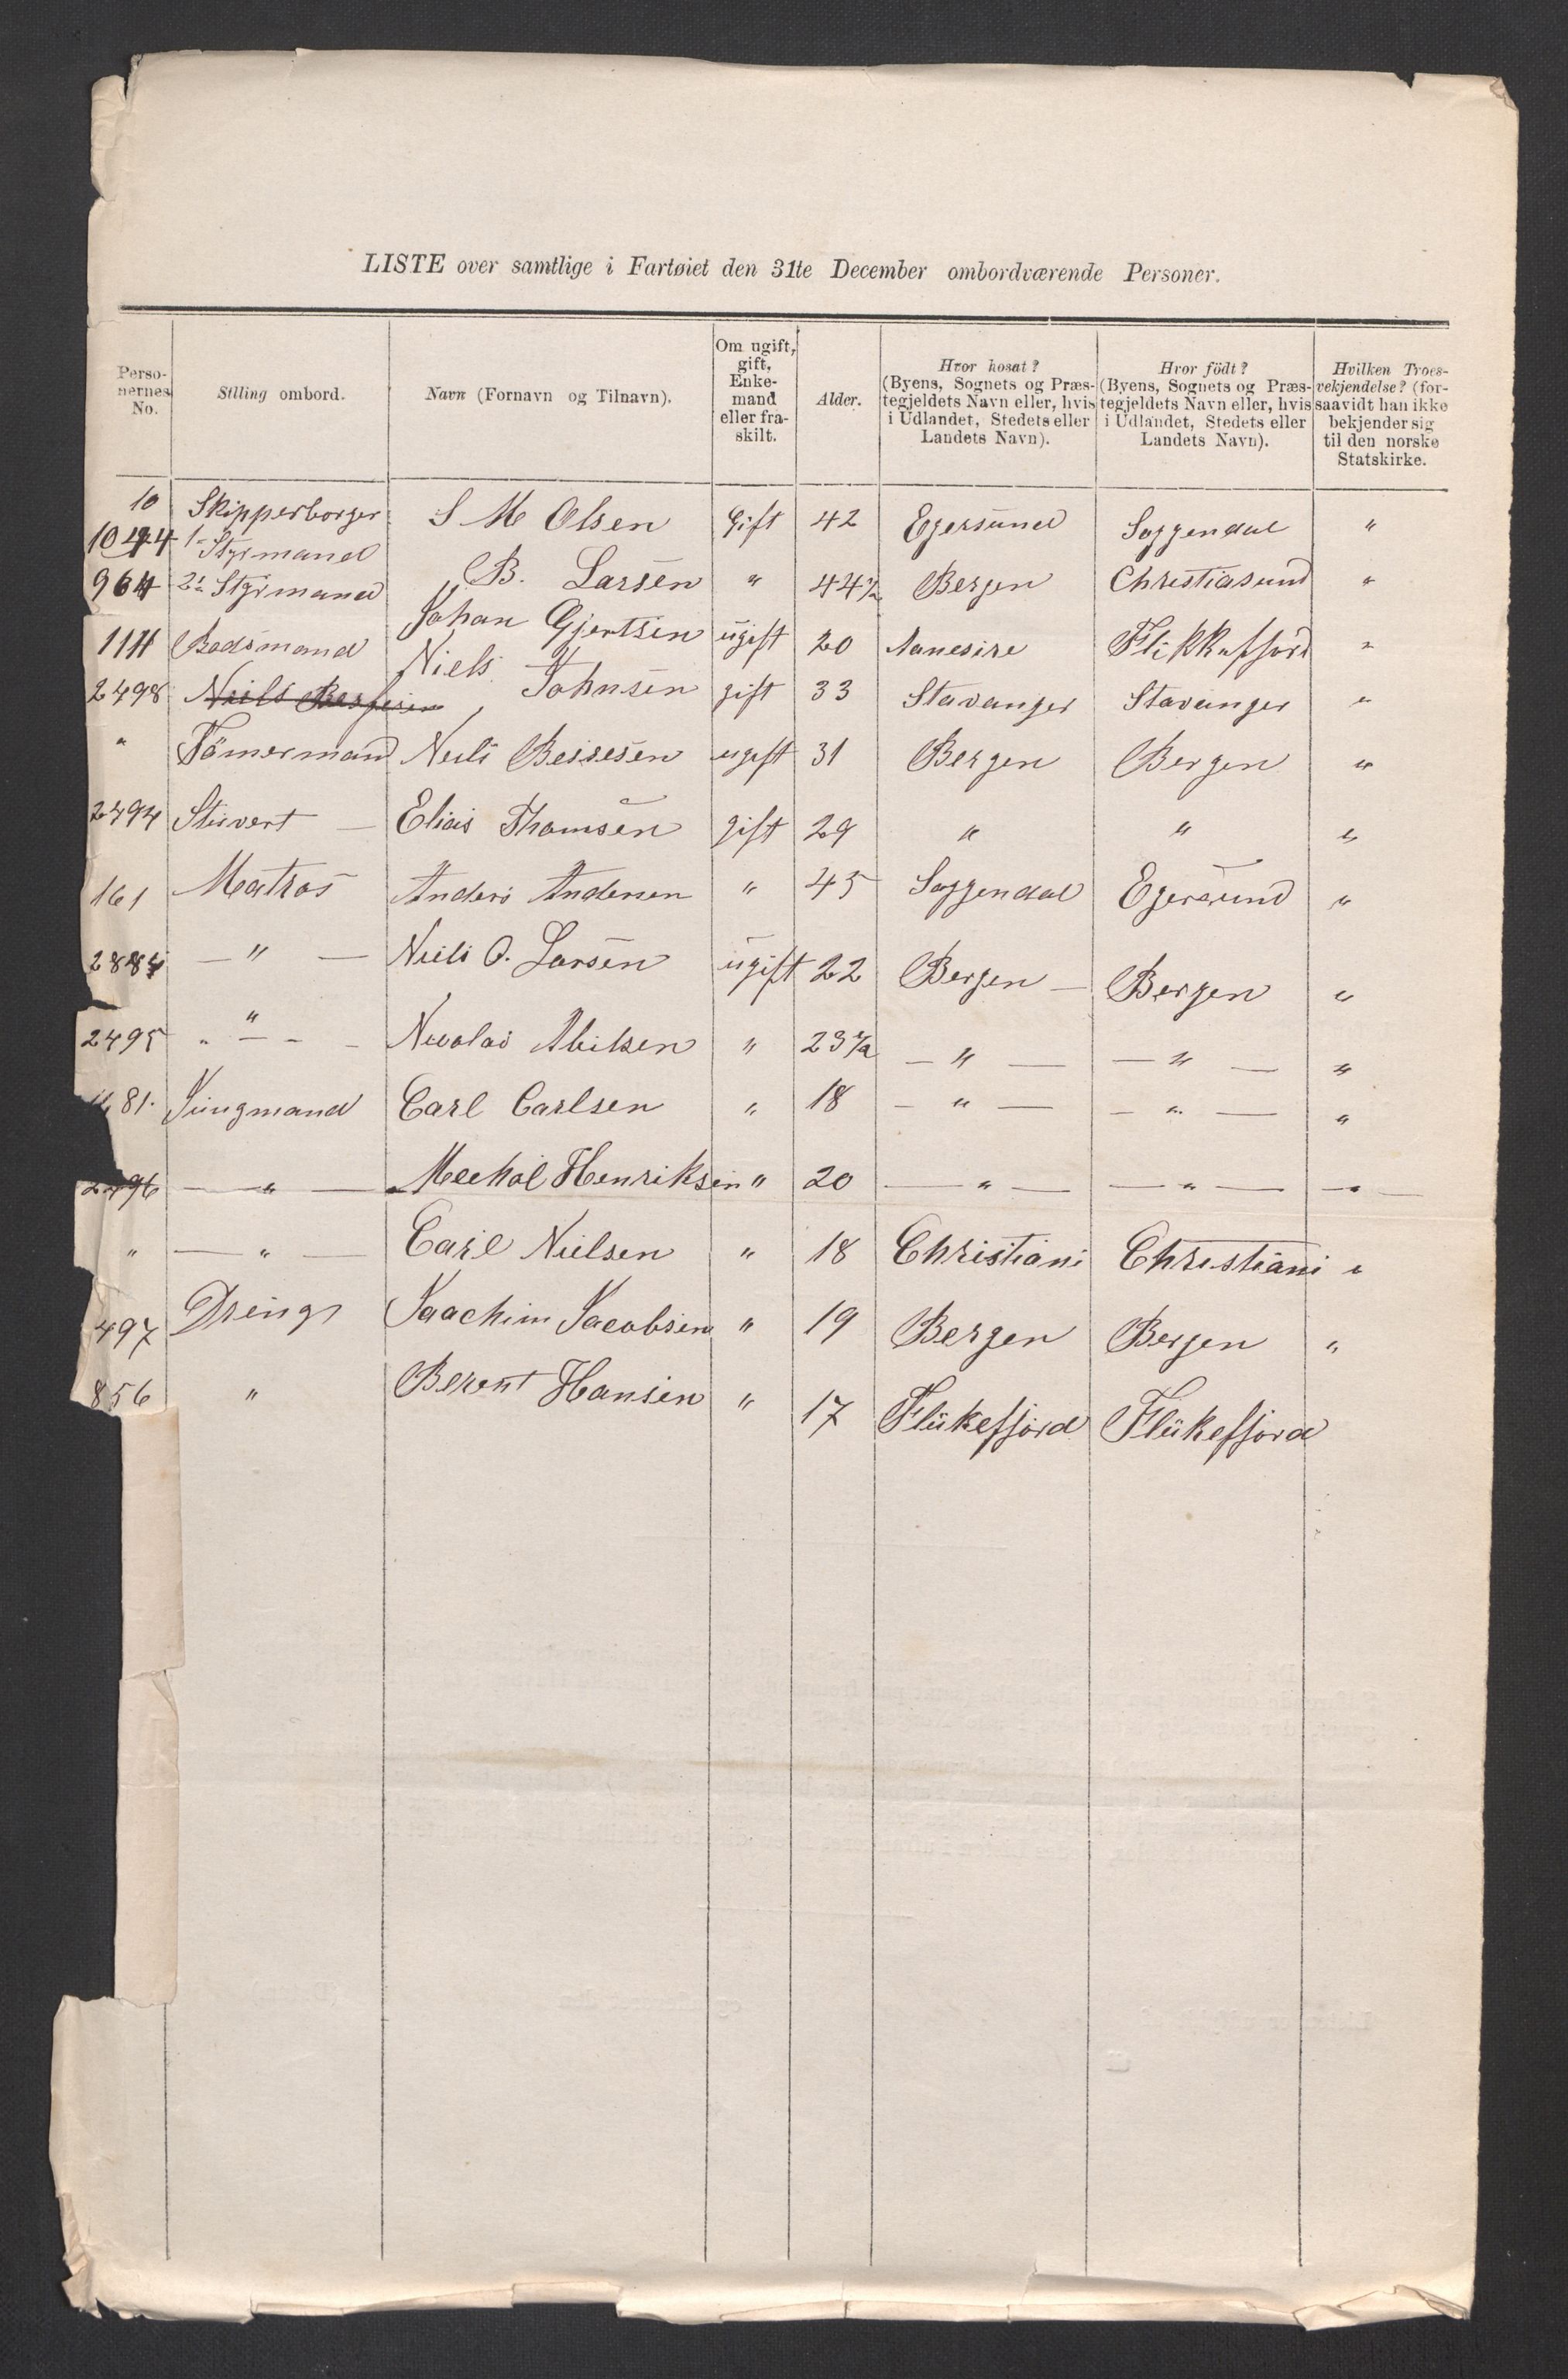 LISTE over samtlige i Fartøiet den 31te December ombordværende Personer.
Personernes No. | Stilling ombord. | Navn (Fornavn og Tilnavn). | Om ugift, gift, Enkemand eller fraskilt. | Alder. | Hvor bosat? (Byens, Sognets og Præstegjeldets Navn eller, hvis i Udlandet, Stedets eller Landets Navn). | Hvor födt? (Byens, Sognets og Præstegjeldets Navn eller, hvis i Udlandet, Stedets eller Landets Navn). | Hvilken Troesbekjendelse? (forsaavidt han ikke bekjender sig til den norske Statskirke.
10 Skipperborger S M Olsen Gift 42 Egersund Soggendal "
1044 1ste Styrmand B. Larsen " 44½ Bergen Christiasund "
964 2den Styrmand Johan Gjertsen ugift 20 Aanesire Flikkefjord "
1111 Badsmand Niels Johnsen gift 33 Stavanger Stavanger "
2498 Niels
" Tömermand Niels Bessesen ugift 31 Bergen Bergen "
2494 Stuvert — Elias Thomsen gift 29 " " "
161 Matros Anders Andersen " 45 Soggendal Egersund "
2884 — " — Niels O. Larsen ugift 22 Bergen — Bergen "
2495 " — Nicolai Abilsen " 23½ — " — — " — "
81. Jungmand Carl Carlsen " 18 — " — — " — "
2496 — " — Mechal Henriksen " 20 — " — — " — — " —
" — " — Carl Nielsen " 18 Christiani Christiani "
497 Dreng Jaachim Jacobsen " 19 Bergen Bergen "
856 " Berent Hansen " 17 Flükefjord Flükefjord